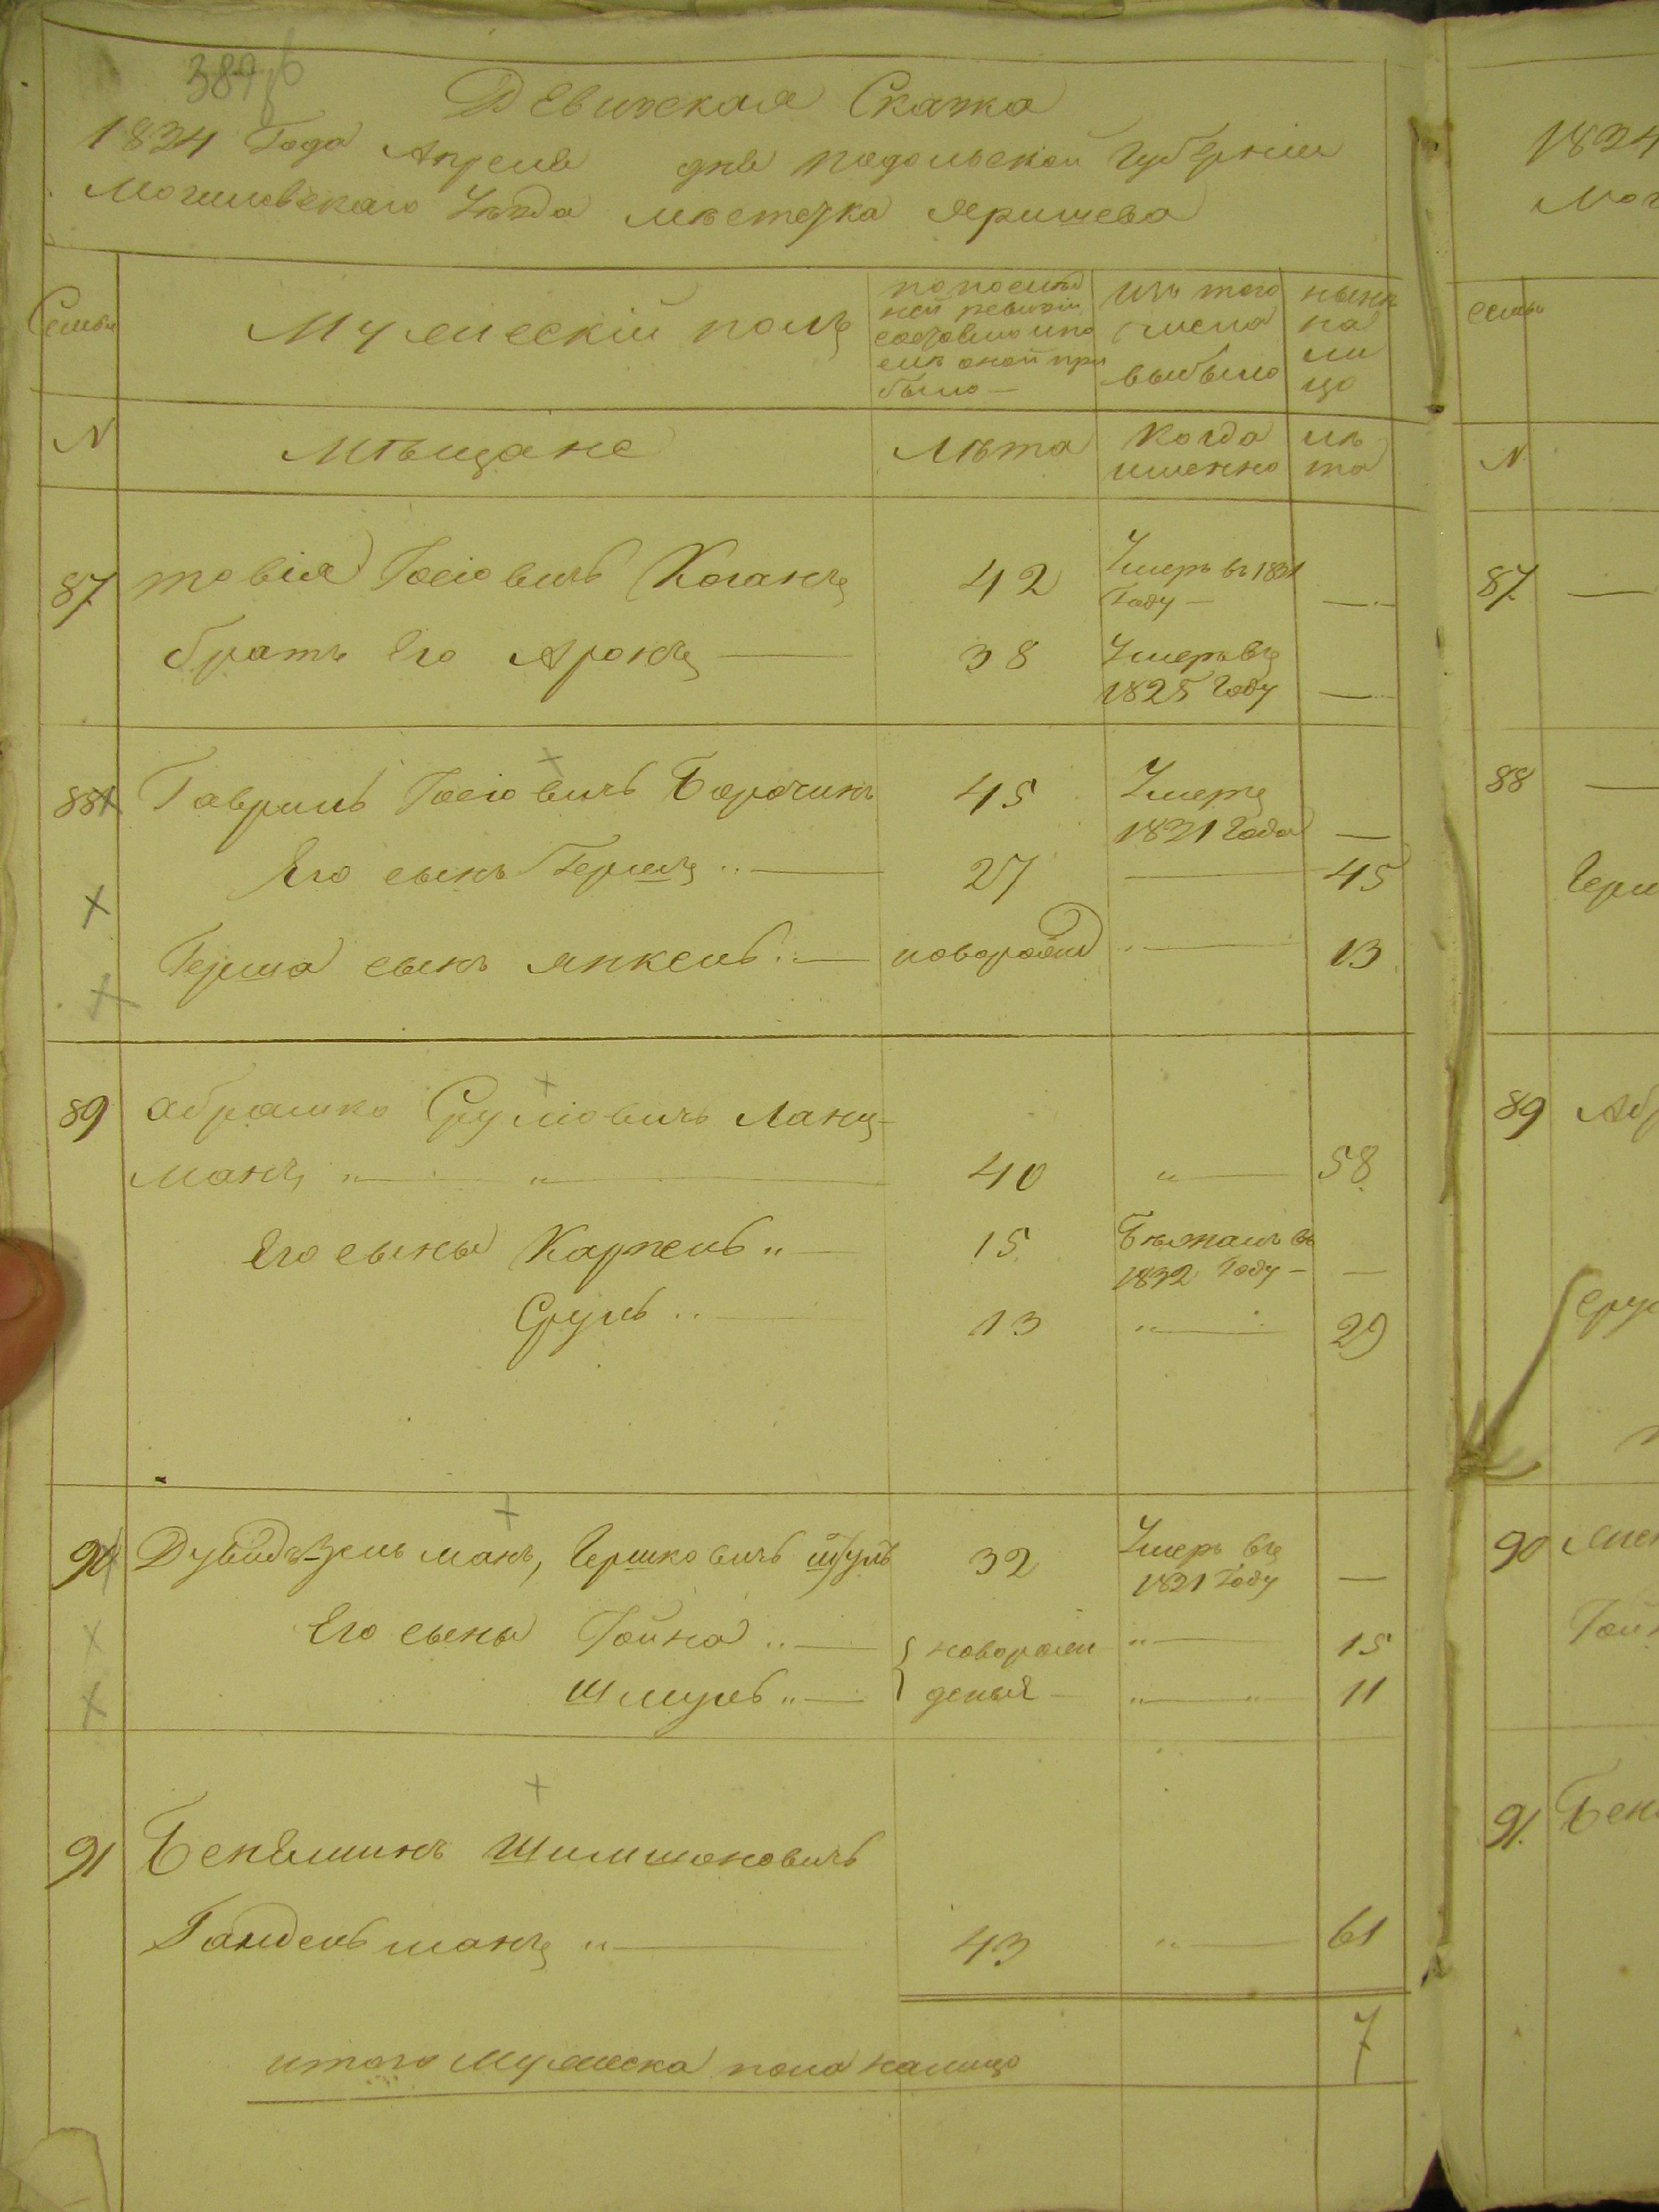 Ревижская Скаска
1834 Года Апреля дня подольской губерніи
Могиловскаго Уѣзда мѣстечка Яришева
Семьи
Мужескій полъ
по послѣд
ней ревизіи
состояло и по
слѣ оной при
было —
Изъ того
числа
выбыло
нынѣ
на
ли
цо
N
Мѣщане
Лѣта
Когда
именно
лѣ
та
87 товія Іосіовичъ Коганъ 42 Умеръ въ 1831
Году — —
братъ Его Аронъ — 38 Умеръ въ
1825 Году —
88 Гаврилъ Іосіовичъ 45 Умеръ
1821 Года —
Его сынъ Гершъ — 27 — 45
Герша сынъ янкель — новорожд — 13
89 абрашко Сруліовичъ Ланц-
манъ „ — „ — 40 „ — 58
Его сыны „ — 15 Бѣжалъ въ
1832 Году — —
Сруль — 13 „ — 29
90 Дувидъ Зельманъ, Гершковичъ 32 Умеръ въ
1821 Году —
Его сыны Гойна „ — новорож „ — 15
Шмуль „ — деныя — „ — „ 11
91 Беніаминъ Шимшоновичъ
Гандельманъ „ — 43 „ — 61
итого мужеска пола налицо 7
1834
Мог
семьи
N
87 —
88 —
Герш
89 Абр
Срул
90
Гойн
91. Бен